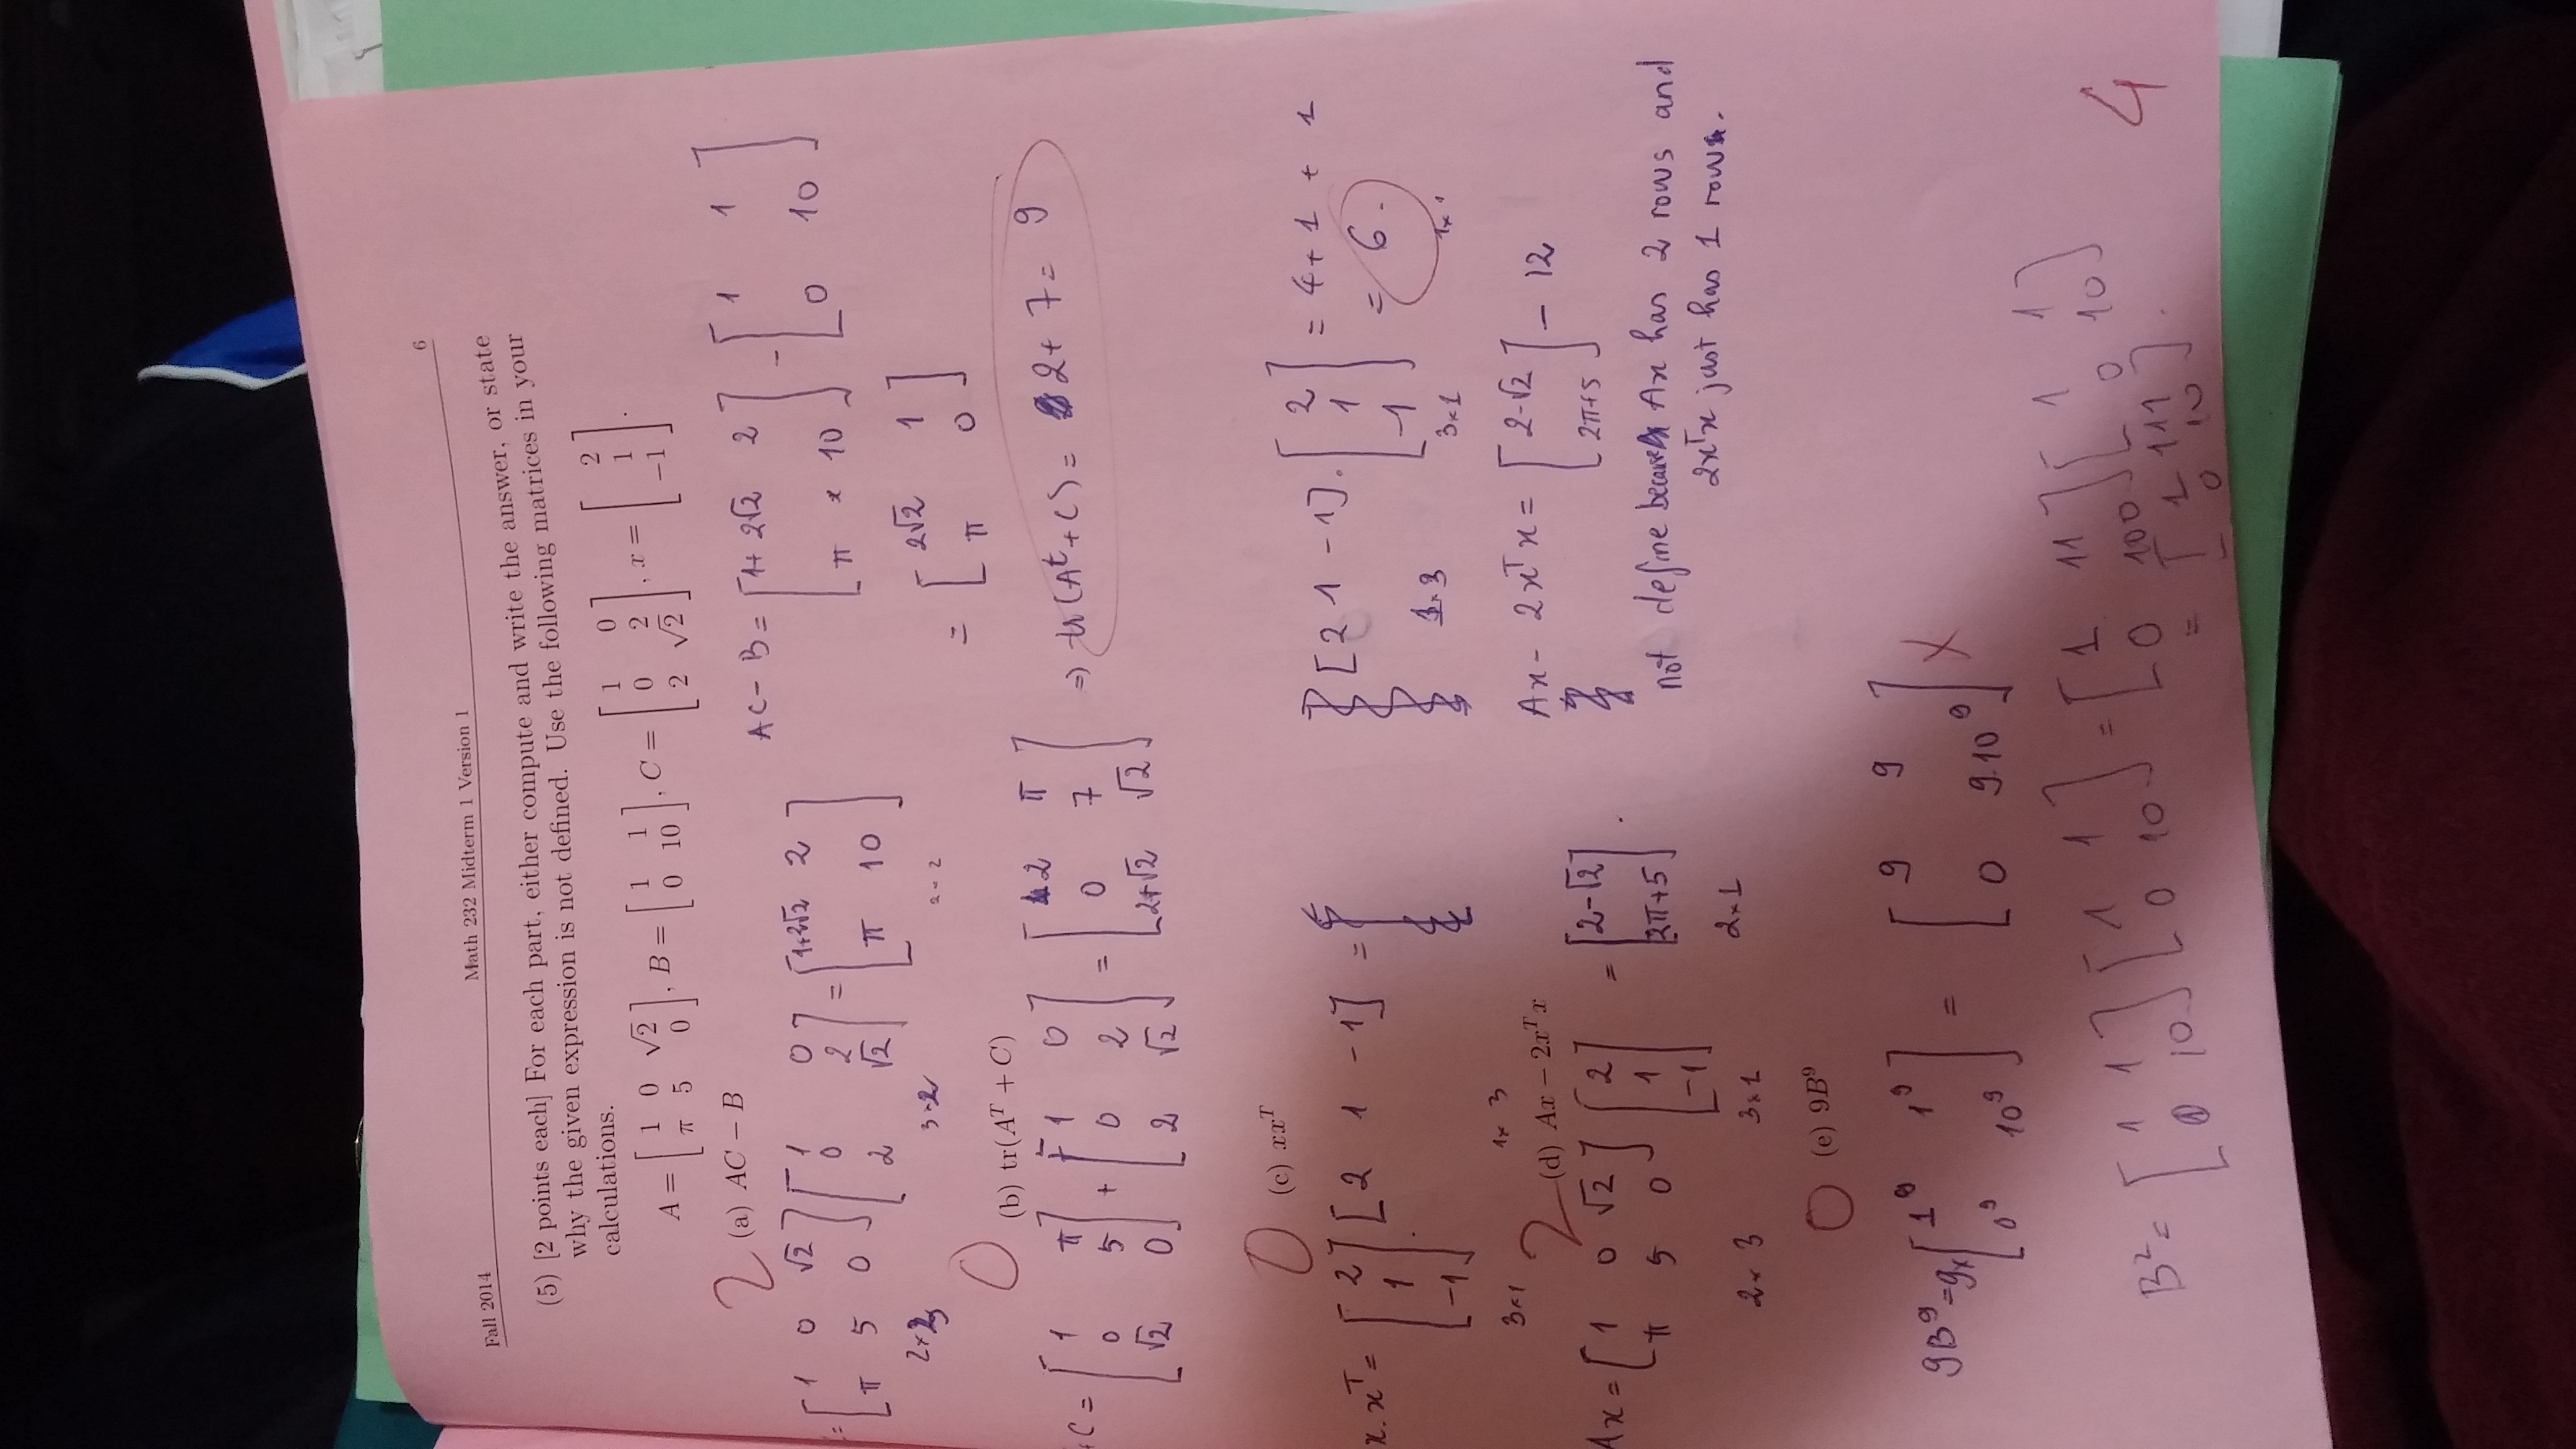 Fall 2014 Math 232 Midterm 1 Version 1 6
(5) [2 points each] For each part, either compute and write the answer, or state
why the given expression is not defined. Use the following matrices in your
calculations.
A = [1 0 √2; π 5 0], B = [1 1; 0 10], C = [1 0; 0 2; 2 √2], x = [2; 1; −1].
2 (a) AC − B
= [1 0 √2; π 5 0] [1 0; 0 2; 2 √2] = [1+2√2 2; π 10]
3×2 2×2
AC − B = [1+2√2 2; π 10] − [1 1; 0 10]
= [2√2 1; π 0]
0 (b) tr(A^T + C)
+C = [1 π; 0 5; √2 0] + [1 0; 0 2; 2 √2] = [2 π; 0 7; 2+√2 √2] ⇒ tr(A^t + C) = 2 + 7 = 9
0 (c) xx^T
x.x^T = [2; 1; −1] [2 1 −1] =
3×1 1×3
[2 1 −1] . [2; 1; −1] = 4 + 1 + 1
= 6.
1×3 3×1 1×1
2 (d) Ax − 2x^T x
Ax = [1 0 √2; π 5 0] [2; 1; −1] = [2−√2; 2π+5].
2×3 3×1 2×1
Ax − 2x^T x = [2−√2; 2π+5] − 12
not define because Ax has 2 rows and
2x^T x just has 1 rows.
0 (e) 9B^9
9B^9 = 9× [1^9 1^9; 0^9 10^9] = [9 9; 0 9.10^9] X
B^2 = [1 1; 0 10] [1 1; 0 10] = [1 11; 0 100] [1 1; 0 10]
= [1 111; 0 10].
4